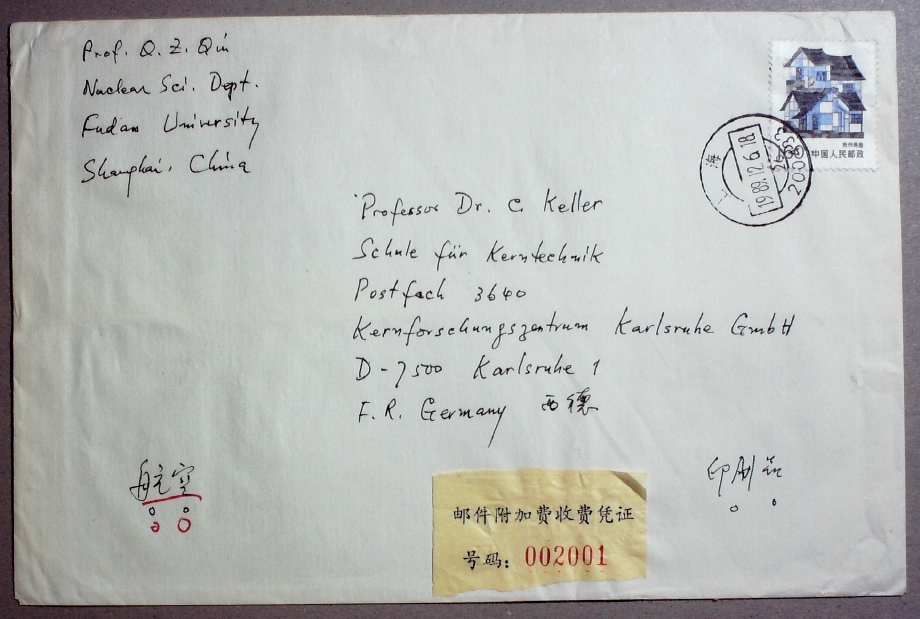 Prof. Q. Z. Qin
Nuclear Sci. Dept.
Fudan University
Shanghai, China
中国人民邮政
上海
1989.12.6.18
Professor Dr. C. Keller
Schule für Kerntechnik
Postfach 3640
Kernforschungszentrum Karlsruhe GmbH
D-7500 Karlsruhe 1
F. R. Germany 西德
航空
印刷品
邮件附加费收费凭证
号码: 002001